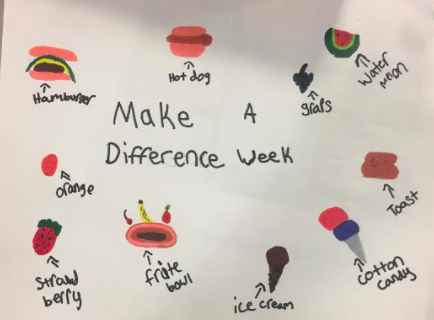 Hamburger
Hot dog
grals
water
melon
Make A
Difference Week
orange
Toast
Strawd
berry
fruite
bowl
ice cream
cotton
candy